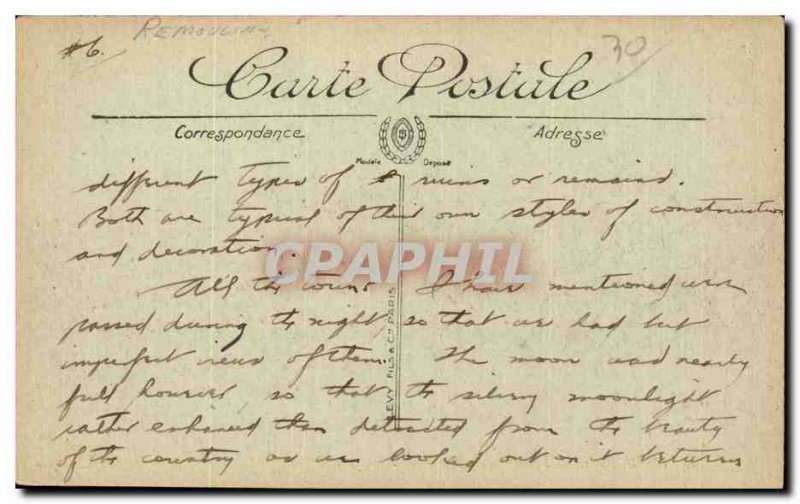 #6.
REMOULINS
30
Carte Postale
Correspondance
Adresse
Modèle Déposé
different types of ruins or remains.
Both are typical of their own styles of construction
and decoration.
CPARPHIL
All the towns I have mentioned were
passed during the night, so that we had but
imperfect views of them. The moon was nearly
full however, so that the silvery moonlight
rather enhanced than detracted from the beauty
of the country as we looked out on it between
LEVY FILS & Cie PARIS